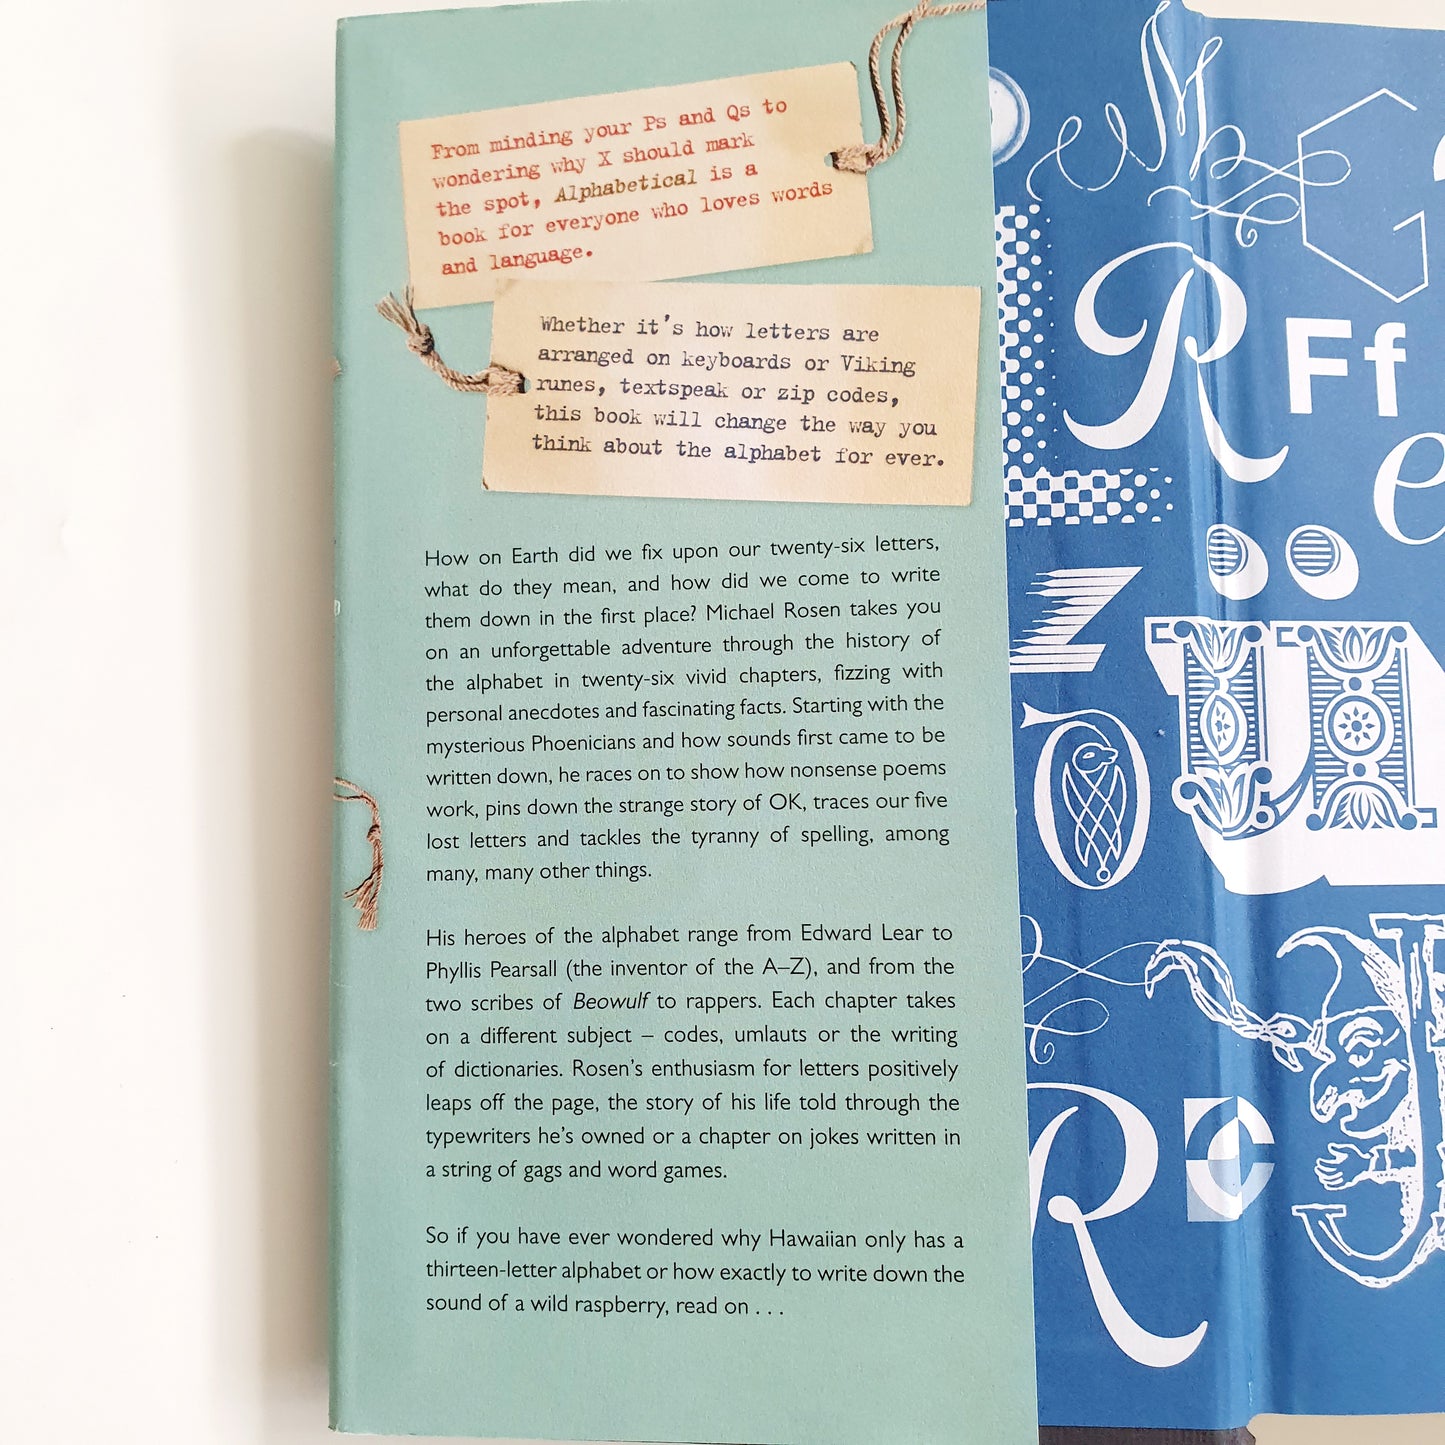 From minding your Ps and Qs to
wondering why X should mark
the spot, Alphabetical is a
book for everyone who loves words
and language.
Whether it's how letters are
arranged on keyboards or Viking
runes, textspeak or zip codes,
this book will change the way you
think about the alphabet for ever.
How on Earth did we fix upon our twenty-six letters,
what do they mean, and how did we come to write
them down in the first place? Michael Rosen takes you
on an unforgettable adventure through the history of
the alphabet in twenty-six vivid chapters, fizzing with
personal anecdotes and fascinating facts. Starting with the
mysterious Phoenicians and how sounds first came to be
written down, he races on to show how nonsense poems
work, pins down the strange story of OK, traces our five
lost letters and tackles the tyranny of spelling, among
many, many other things.
His heroes of the alphabet range from Edward Lear to
Phyllis Pearsall (the inventor of the A–Z), and from the
two scribes of Beowulf to rappers. Each chapter takes
on a different subject – codes, umlauts or the writing
of dictionaries. Rosen's enthusiasm for letters positively
leaps off the page, the story of his life told through the
typewriters he's owned or a chapter on jokes written in
a string of gags and word games.
So if you have ever wondered why Hawaiian only has a
thirteen-letter alphabet or how exactly to write down the
sound of a wild raspberry, read on . . .
M
G
R
Ff
e
Z
ü
O
R
C
J